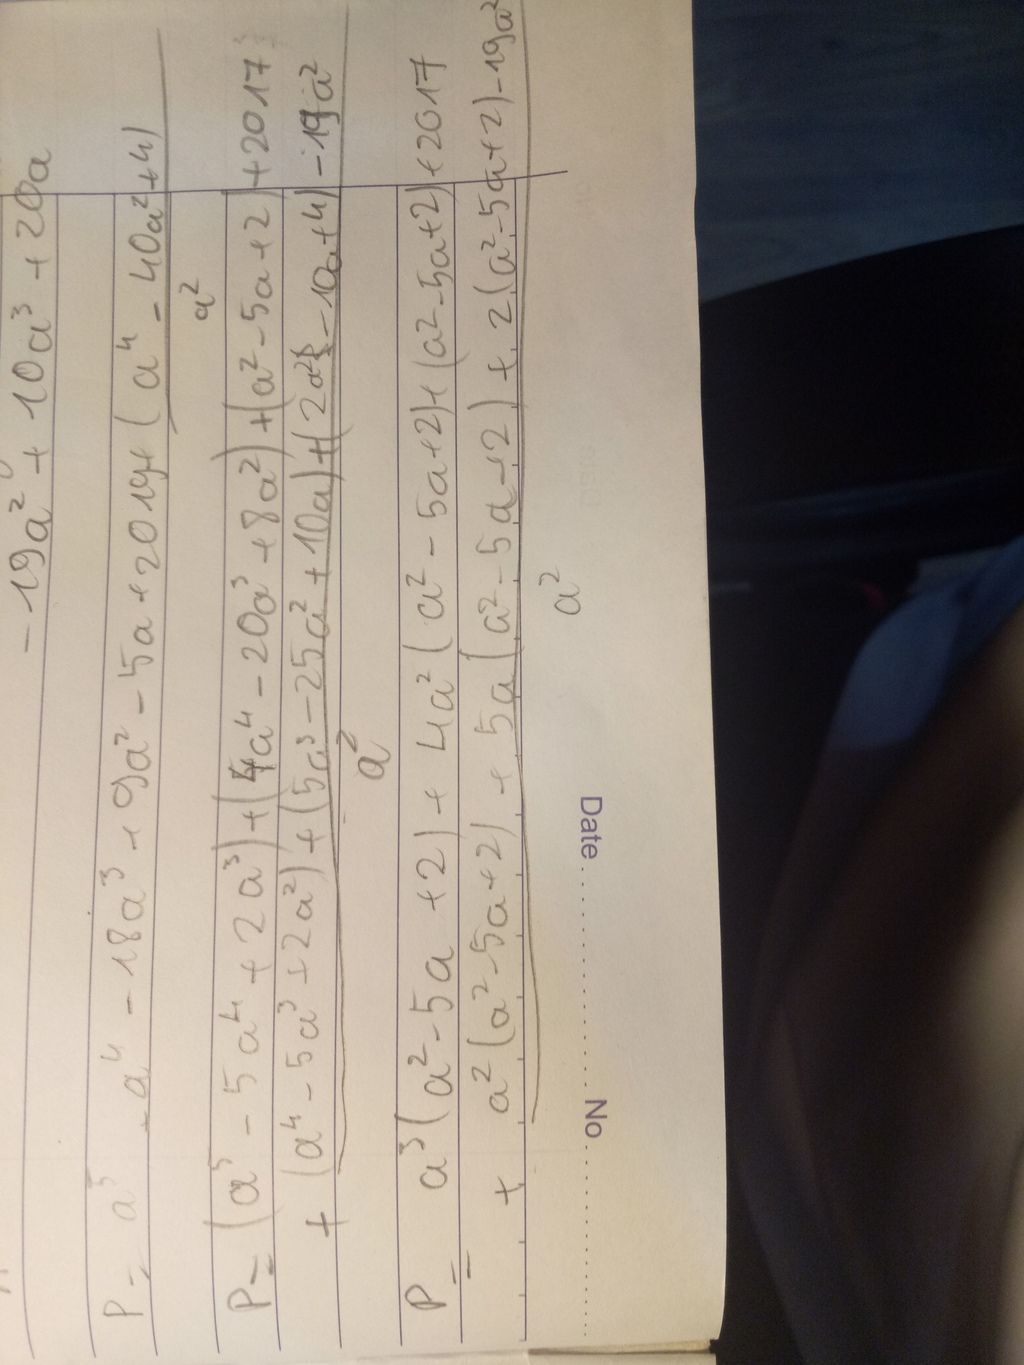 -19a² + 10a³ + 20a
P = a⁵ - a⁴ - 18a³ + 9a² - 5a + 2017 + (a⁴ - 40a² + 4)
a²
P = (a⁵ - 5a⁴ + 2a³) + (4a⁴ - 20a³ + 8a²) + (a² - 5a + 2) + 2017
+ (a⁴ - 5a³ + 2a²) + (5a³ - 25a² + 10a) + (2a² - 10a + 4) - 19a²
a²
P = a³(a² - 5a + 2) + 4a²(a² - 5a + 2) + (a² - 5a + 2) + 2017
+ a²(a² - 5a + 2) + 5a(a² - 5a + 2) + 2(a² - 5a + 2) - 19a²
a²
No. Date